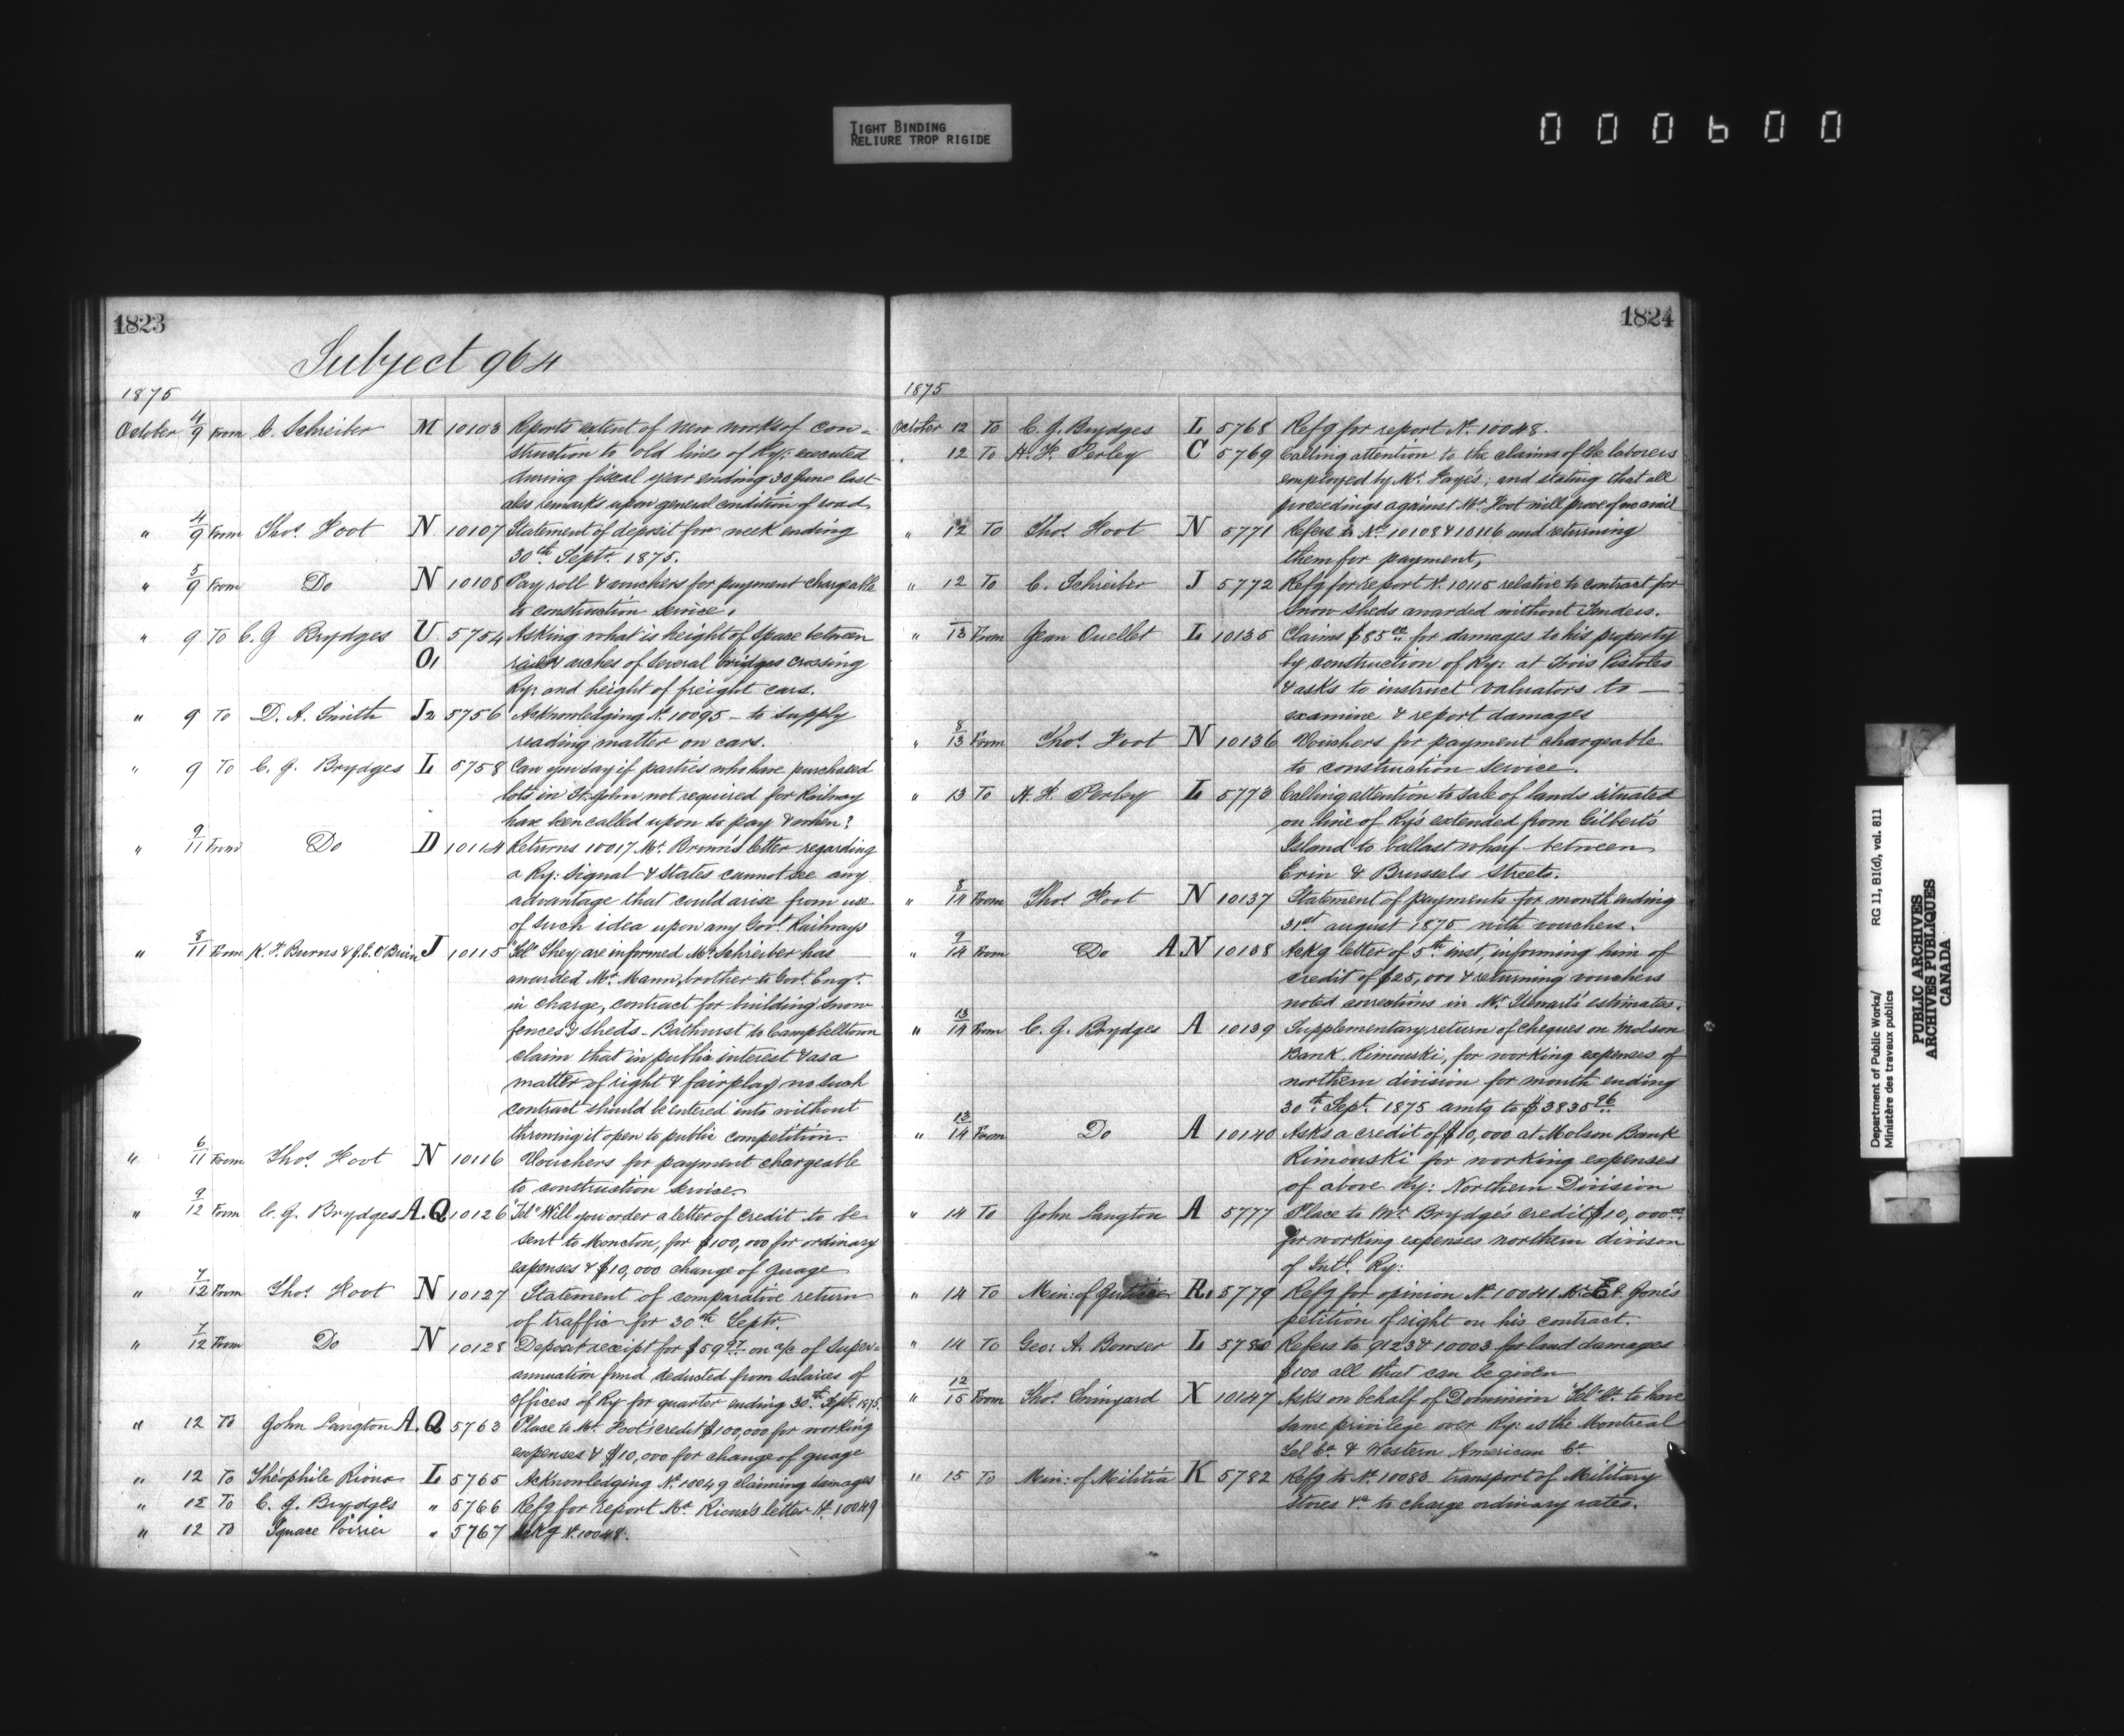 TIGHT BINDING
RELIURE TROP RIGIDE
000600
1823
Subject 964
1875
October 4/9 From C. Schreiber M 10103 Reports extent of new works of con=
struction to old lines of Ry: executed
during fiscal year ending 30 June last
also remarks upon general condition of road
" 4/9 From Thos. Foot N 10107 Statement of deposit for week ending
30th Septr. 1875.
" 5/9 From Do N 10108 Pay roll & vouchers for payment chargeable
to construction service.
" 9 To C. J Brydges U 5754 Asking what is height of space between
O, arches of several bridges crossing
Ry: and height of freight cars.
" 9 To D. A. Smith J2 5756 Acknowledging No. 10095 - to supply
reading matter on cars.
" 9 To C. J. Brydges L 5758 Can you say if parties who have purchased
lots in St. John not required for Railway
have been called upon to pay & when?
" 9/11 From Do D 10114 Returns 10017 Mr. Brown's letter regarding
a Ry: signal & states cannot see any
advantage that could arise from use
of such idea upon any Govt. Railways
" 8/11 From K. F. Burns & J. E. O'Brien J 10115 "Tel" They are informed Mr. Schreiber has
awarded Mr. Mann, brother to Govt. Engr.
in charge, contract for building snow
fences & sheds - Bathurst to Campbelltown
claim that in public interest & as a
matter of right & fairplay no such
contract should be entered into without
throwing it open to public competition.
" 6/11 From Thos. Foot N 10116 Vouchers for payment chargeable
to construction service.
" 9/12 From C. J. Brydges A.Q 10126 "Tel" Will you order a letter of credit to be
sent to Moncton, for $100,000 for ordinary
expenses & $10,000 change of guage
" 7/12 From Thos. Foot N 10127 Statement of comparative return
of traffic for 30th Septr.
" 7/12 From Do N 10128 Deposit receipt for $59 97 on a/c of Super=
annuation fund deducted from salaries of
officers of Ry for quarter ending 30th Sept. 1875.
" 12 To John Langton A.Q 5763 Place to Mr. Foot's credit $100,000 for working
expenses & $10,000 for change of guage
" 12 To Théophile Rioux L 5765 Acknowledging No. 10049 claiming damages
" 12 To C. J. Brydges " 5766 Refg for report Mr. Rioux's letter No. 10049
" 12 To Ignace Poirier " 5767 Ackg No. 10048.
1824
1875
October 12 To C. J. Brydges L 5768 Refg for report No. 10048.
" 12 To H. F. Perley C 5769 Calling attention to the claims of the laborers
employed by Mr. and stating that all
proceedings against Mr. Foot will prove of no avail
" 12 To Thos. Foot N 5771 Refers to Nos. 10108 & 10116 and returning
them for payment,
" 12 To C. Schreiber J 5772 Refg for report No. 10115 relative to contract for
snow sheds awarded without Tenders.
" 13 From Jean Ouellet L 10135 Claims $85 00 for damages to his property
by construction of Ry: at Trois Pistoles
& asks to instruct valuators to
examine & report damages
" 8/13 From Thos. Foot N 10136 Vouchers for payment chargeable
to construction service.
" 13 To H. F. Perley L 5773 Calling attention to sale of lands situated
on line of Ry's extended from Gilberts
Island to ballast wharf between
Erin & Brussels Streets.
" 8/14 From Thos. Foot N 10137 Statement of payments for month ending
31st august 1875 with vouchers.
" 9/14 From Do A.N 10138 Ackg letter of 5th inst, informing him of
credit of $25,000 & returning vouchers
noted corrections in Mr. Stewart's estimates.
" 13/14 From C. J. Brydges A 10139 Supplementary return of cheques on Molson
Bank Rimouski, for working expenses of
northern division for month ending
30th Sept. 1875 amtg to $3835 96
" 13/14 From Do A 10140 Asks a credit of $10,000 at Molson Bank
Rimouski for working expenses
of above Ry: Northern Division
" 14 To John Langton A 5777 Place to Mr. Brydge's credit $10,000 00
for working expenses northern divison
of Intl. Ry:
" 14 To Min: of Justice R. 5779 Refg for opinion No. 10041 Mr. Jone's
petition of right on his contract.
" 14 To Geo: A. Bowser L 5780 Refers to 9123 & 10003 for land damages
$100 all that can be given
" 12/15 From Thos. Swinyard X 10147 Asks on behalf of Dominion Tel Co. to have
same privilege over Ry: as the Montreal
Tel Co. & Western American Co.
" 15 To Min: of Militia K 5782 Refg to No. 10083 transport of Military
stores &c to charge ordinary rates.
Department of Public Works/ RG 11, B1(d), vol. 811
Ministère des travaux publics
PUBLIC ARCHIVES
ARCHIVES PUBLIQUES
CANADA